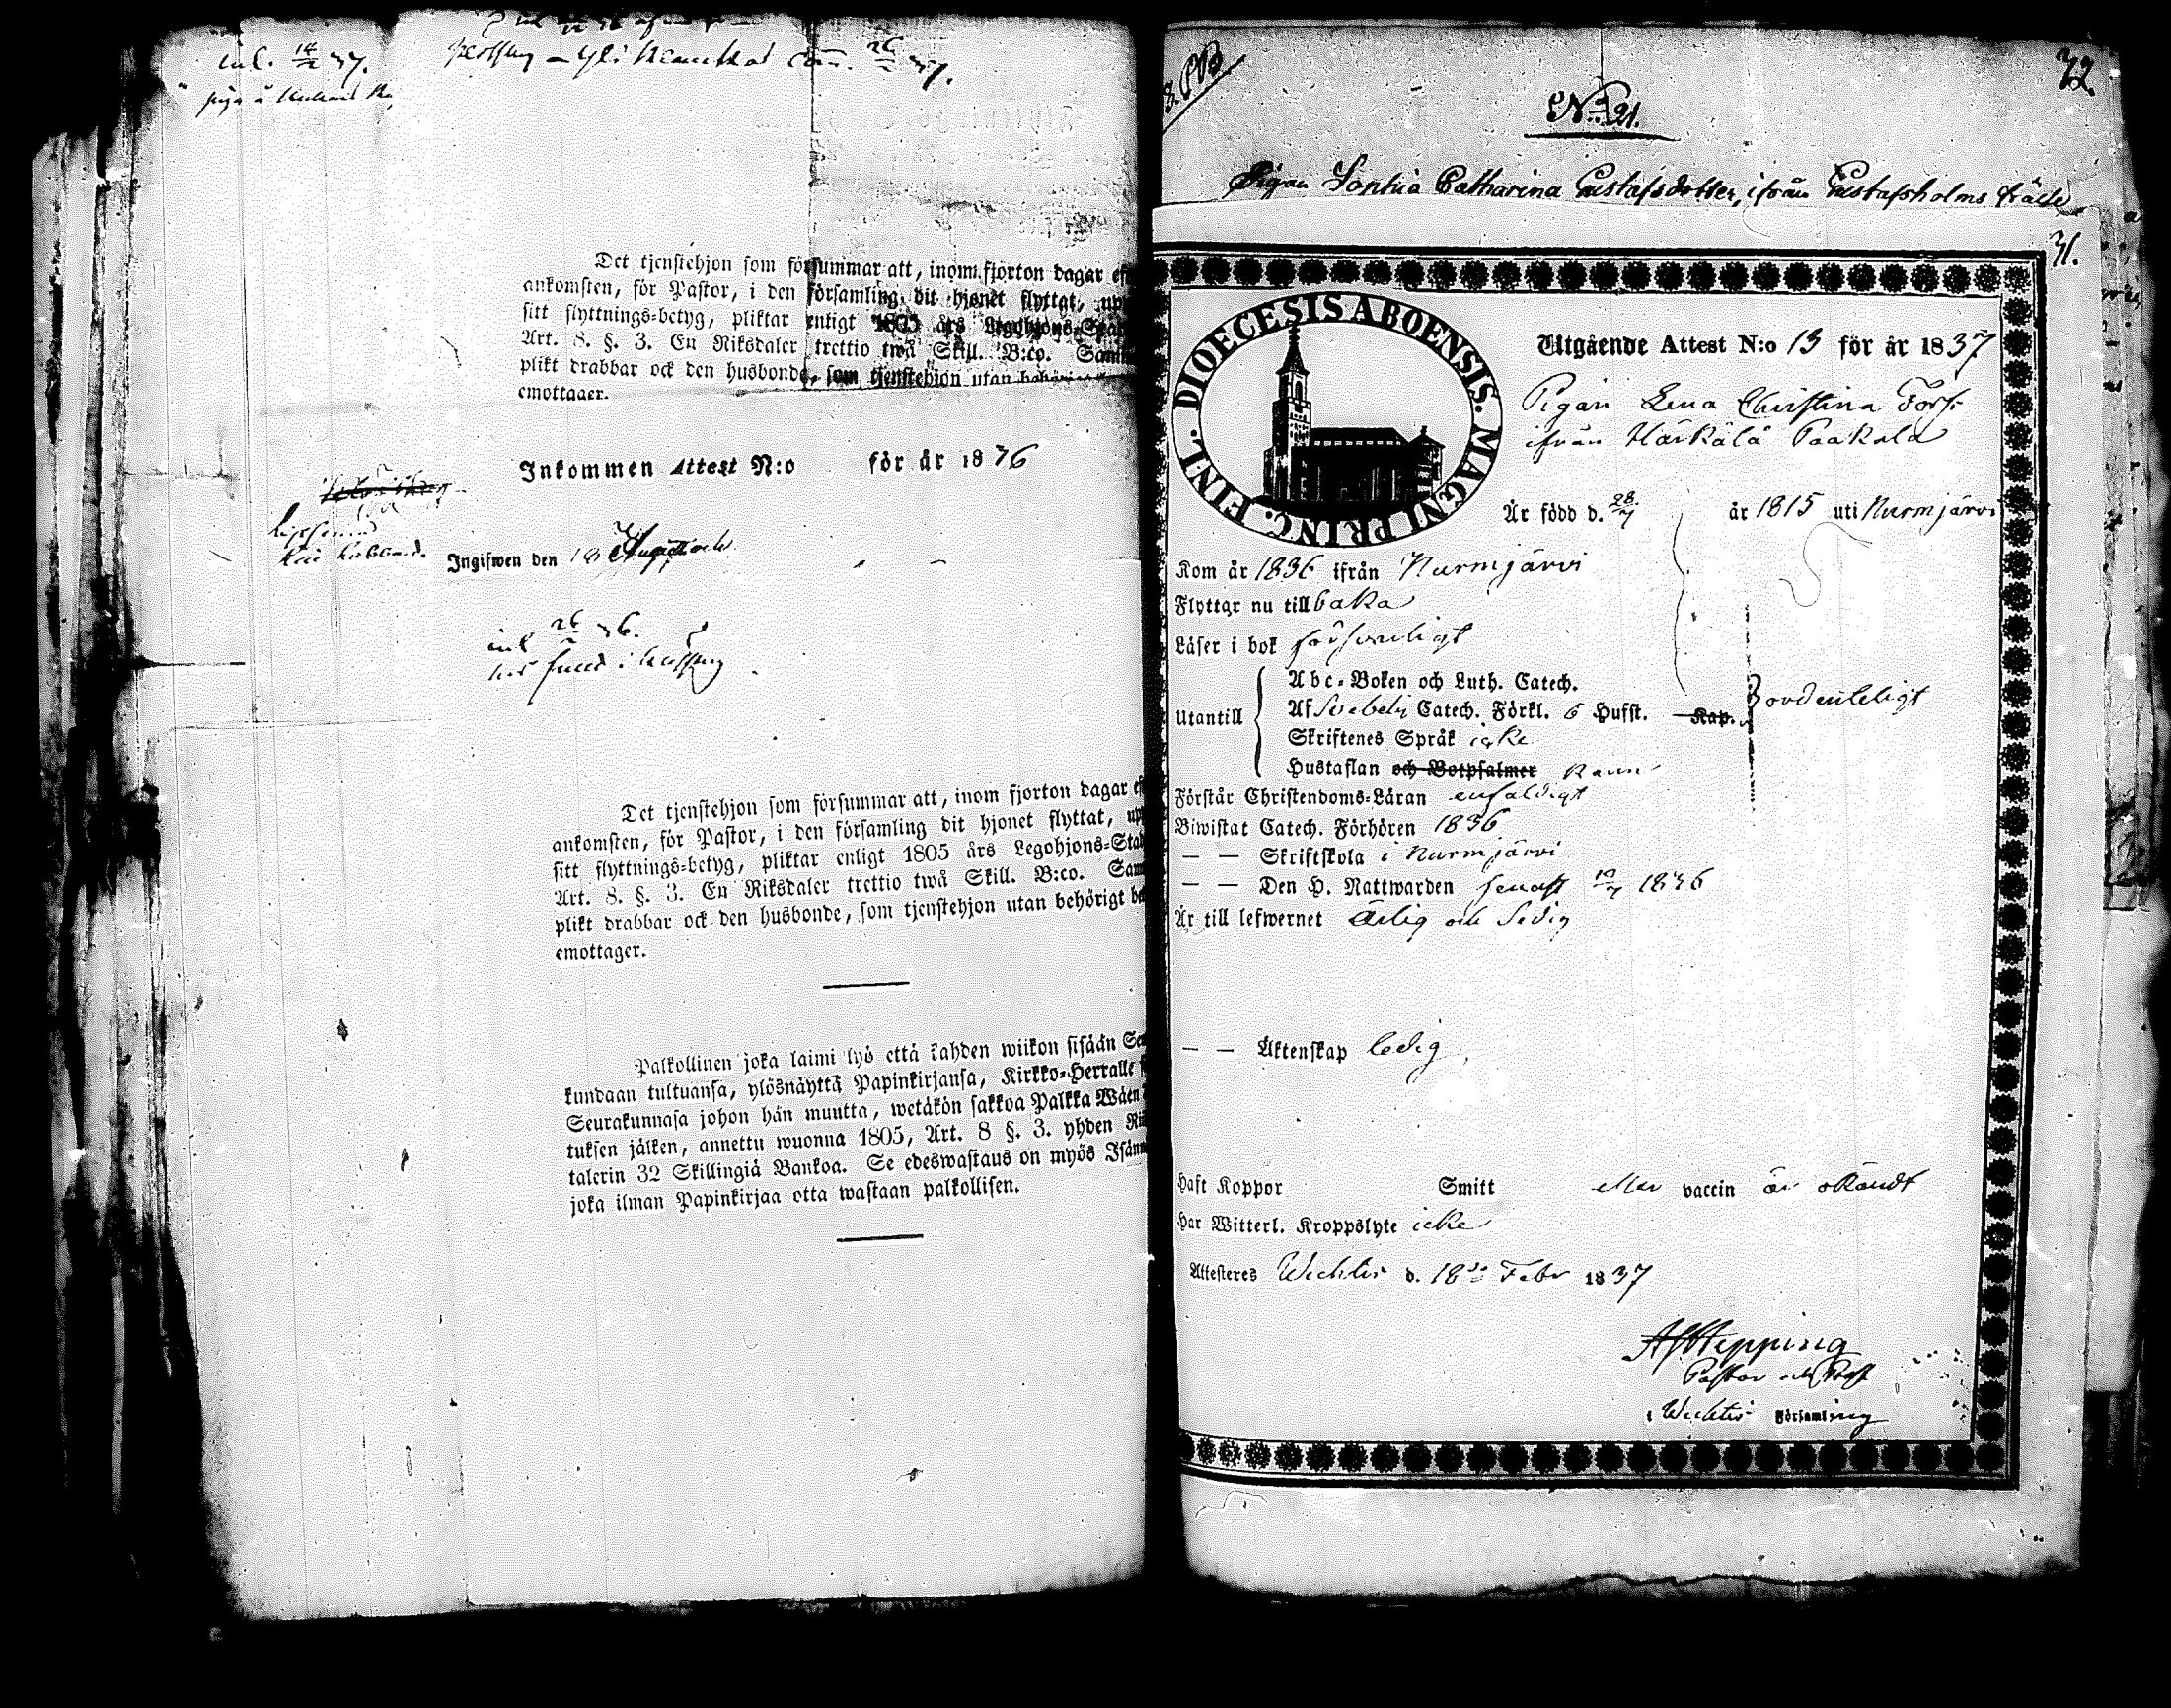 ink. 14/2 37.
26/2 37.
Det tjenstehjon som försummar att, inom fjorton dagar ef
ankomsten, för Pastor, i den församling dit hjonet flyttat, upp
sitt flyttnings-betyg, pliktar enligt 1805 års Legohjons-Stad
Art. 8. §. 3. En Riksdaler trettio twå Skill. B:co. Samm
plikt drabbar ock den husbonde, som tjenstehjon utan
emottager.
Inkommen Attest N:o för år 1836
Ingifwen den 18
ink 26/ 36.
Det tjenstehjon som försummar att, inom fjorton dagar ef
ankomsten, för Pastor, i den församling dit hjonet flyttat, upp
sitt flyttnings-betyg, pliktar enligt 1805 års Legohjons-Stad
Art. 8. §. 3. En Riksdaler trettio twå Skill. B:co. Sam
plikt drabbar ock den husbonde, som tjenstehjon utan behörigt be
emottager.
Palkollinen joka laimi lyö että kahden wiikon sisään Seu
kundaan tultuansa, ylösnäyttä Papinkirjansa, Kirkko-Herralle s
Seurakunnasa johon hän muutta, wetäkön sakkoa Palkka Wäen
tuksen jälken, annettu wuonna 1805, Art. 8 §. 3. yhden Rii
talerin 32 Skillingiä Bankoa. Se edeswastaus on myös Isänn
joka ilman Papinkirjaa otta wastaan palkollisen.
32.
No 21.
Pigan Sophia Catharina Gustafsdotter, ifrån Gustafsholms frälse
31.
DIOECESIS ABOENSIS. MAGNI PRINC. FINL.
Utgående Attest N:o 13 för år 1837
Pigan Lena Christina Forss
ifrån Härkälä Paakala
Är född d. 28/7 år 1815 uti Nurmjärvi
Kom år 1836 ifrån Nurmjärvi
Flyttar nu tillbaka
Läser i bok försvarligt
Utantill
Abc-Boken och Luth. Catech.
Af Svebelii Catech. Förkl. 6 Hufst. Kap. ordenteligt
Skriftenes Språk icke
Hustaflan och Botpsalmer kann
Förstår Christendoms-Läran enfaldigt
Biwistat Catech. Förhören 1836
— — Skriftskola i Nurmjärvi
— — Den H. Nattwarden senast 10/7 1836
Är till lefwernet Ärlig och Sedig
— — Äktenskap ledig
Haft Koppor Smitt eller vaccin är okändt
Har Witterl. Kroppslyte icke
Attesteres Wichtis d. 18de Febr 1837
Hepping
Pastor och Prost
i Wichtis Församling